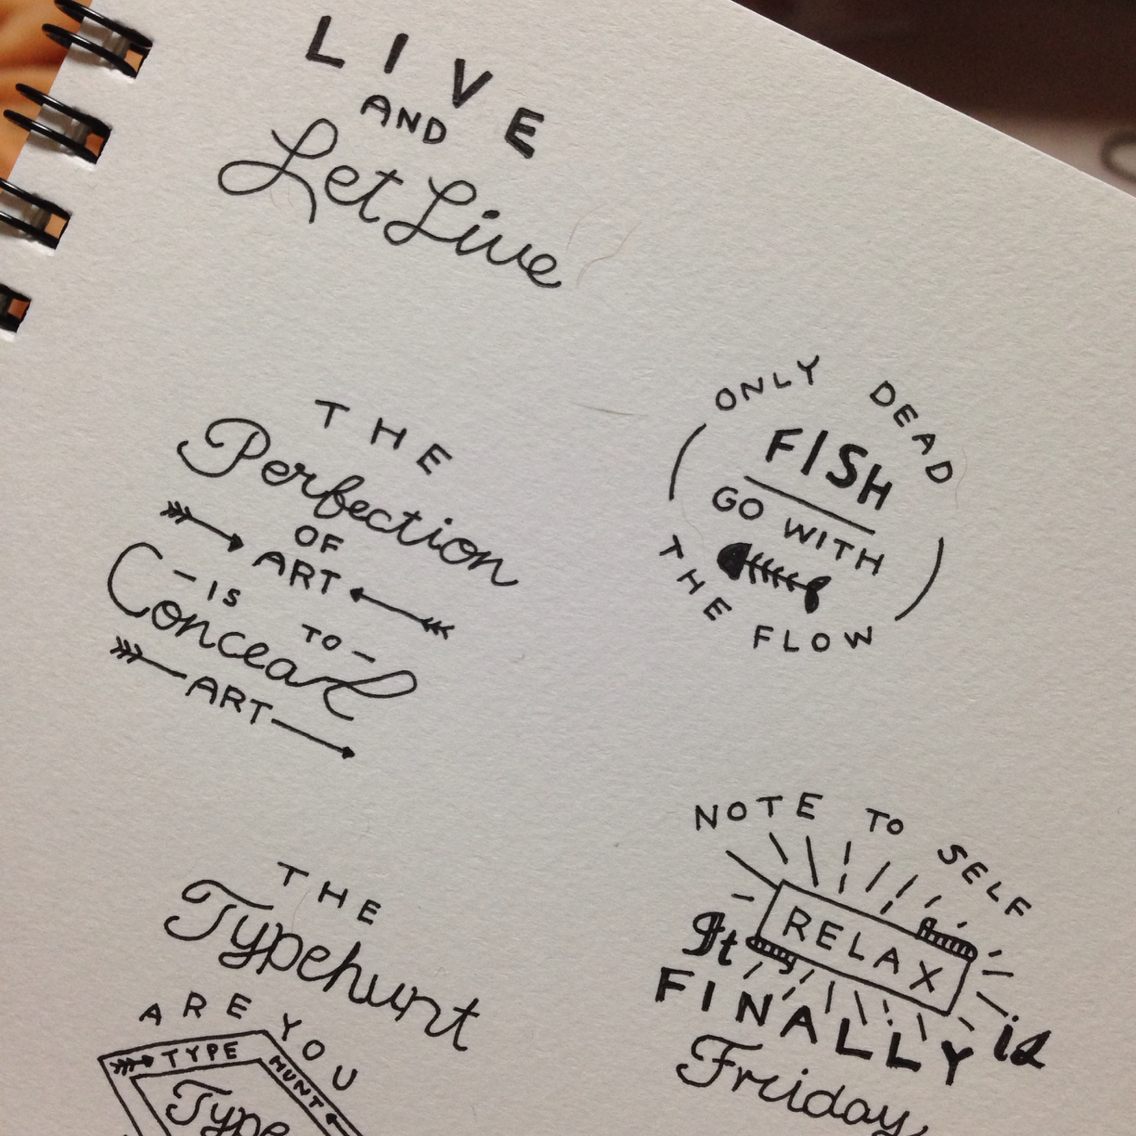 LIVE
AND
Let Live
THE
Perfection
OF
ART
-IS
TO-
Conceal
ART
ONLY DEAD
FISH
GO WITH
THE FLOW
THE
Typehunt
ARE YOU
TYPE HUNT
Type
NOTE TO SELF
RELAX
It is
FINALLY
Friday